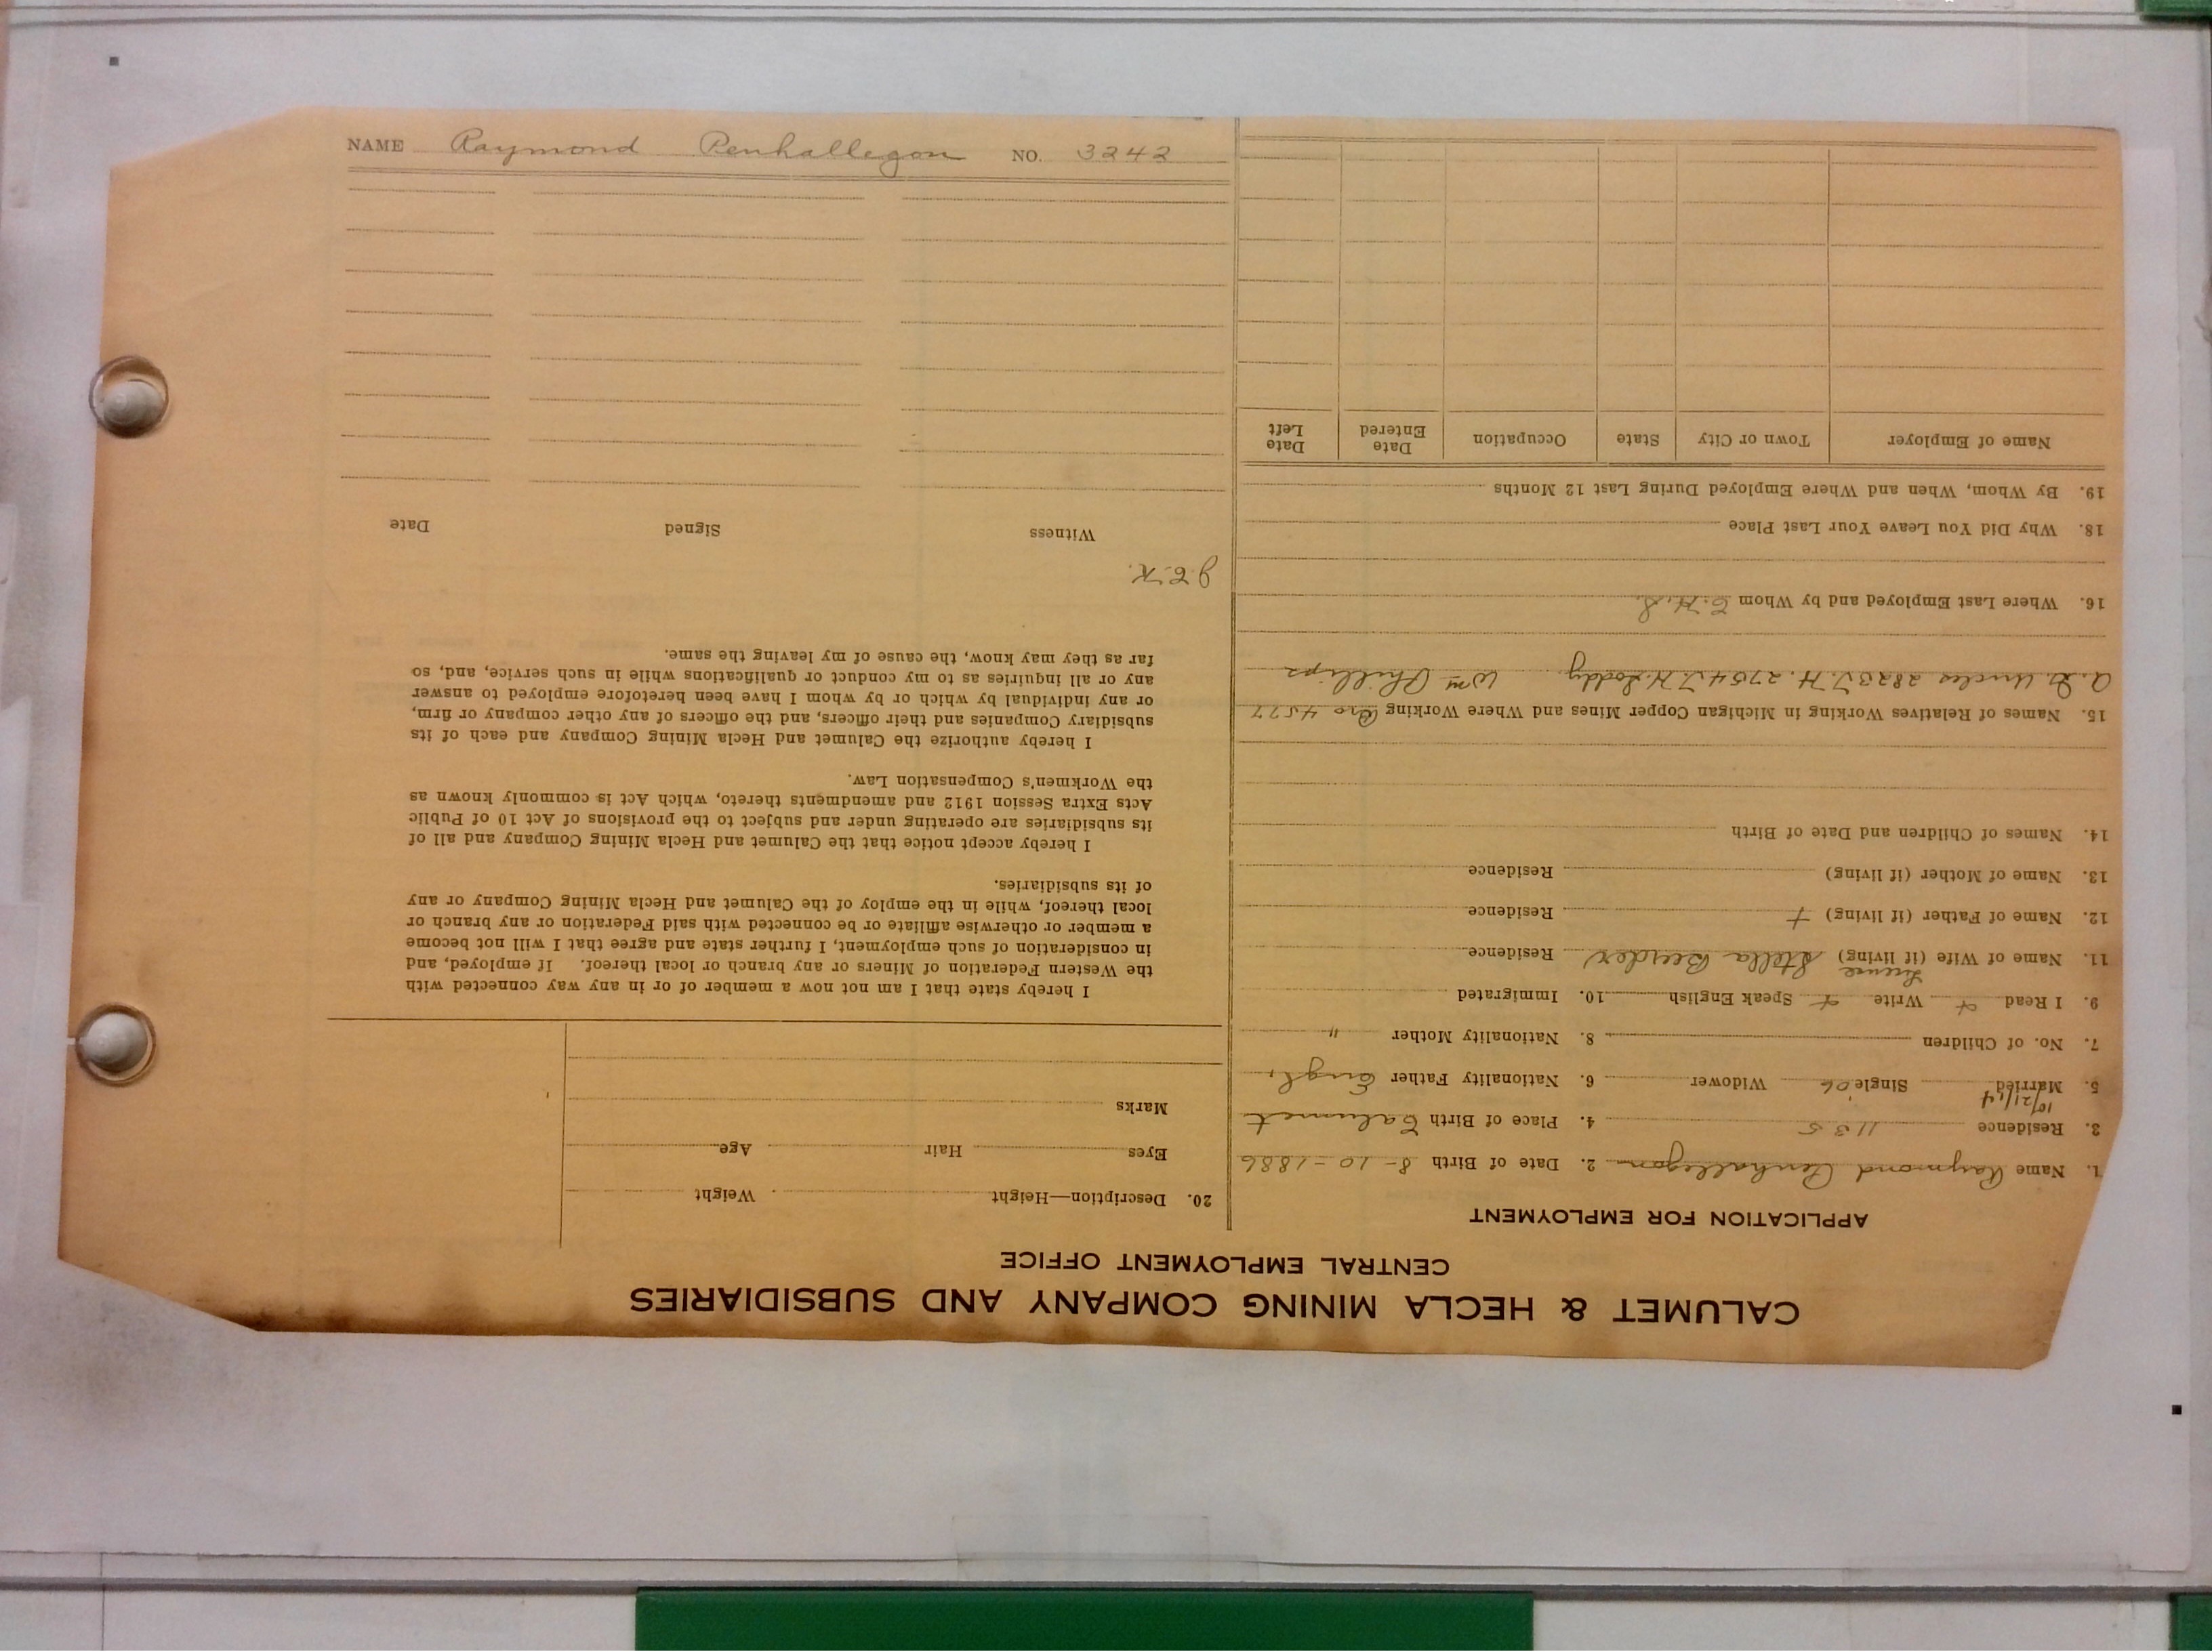 CALUMET & HECLA MINING COMPANY AND SUBSIDIARIES
CENTRAL EMPLOYMENT OFFICE
APPLICATION FOR EMPLOYMENT
1. Name Raymond Penhallegon 2. Date of Birth 8-10-1886
3. Residence 1135 4. Place of Birth Calumet
10/21/14
5. Married Single 06 Widower 6. Nationality Father Engl.
7. No. of Children 8. Nationality Mother "
9. I Read + Write + Speak English 10. Immigrated
License
11. Name of Wife (if living) Stella Bender Residence
12. Name of Father (if living) + Residence
13. Name of Mother (if living) Residence
14. Names of Children and Date of Birth
15. Names of Relatives Working in Michigan Copper Mines and Where Working Bro 4577
Uncles 2823 T.H. 2754 T.H. Loddy Wm Phillips
16. Where Last Employed and by Whom C.H.S.
18. Why Did You Leave Your Last Place
19. By Whom, When and Where Employed During Last 12 Months
Name of Employer Town or City State Occupation Date Entered Date Left
20. Description—Height Weight
Eyes Hair Age
Marks
I hereby state that I am not now a member of or in any way connected with
the Western Federation of Miners or any branch or local thereof. If employed, and
in consideration of such employment, I further state and agree that I will not become
a member or otherwise affiliate or be connected with said Federation or any branch or
local thereof, while in the employ of the Calumet and Hecla Mining Company or any
of its subsidiaries.
I hereby accept notice that the Calumet and Hecla Mining Company and all of
its subsidiaries are operating under and subject to the provisions of Act 10 of Public
Acts Extra Session 1912 and amendments thereto, which Act is commonly known as
the Workmen's Compensation Law.
I hereby authorize the Calumet and Hecla Mining Company and each of its
subsidiary Companies and their officers, and the officers of any other company or firm,
or any individual by which or by whom I have been heretofore employed to answer
any or all inquiries as to my conduct or qualifications while in such service, and, so
far as they may know, the cause of my leaving the same.
J.E.K.
Witness Signed Date
NAME Raymond Penhallegon NO. 3242